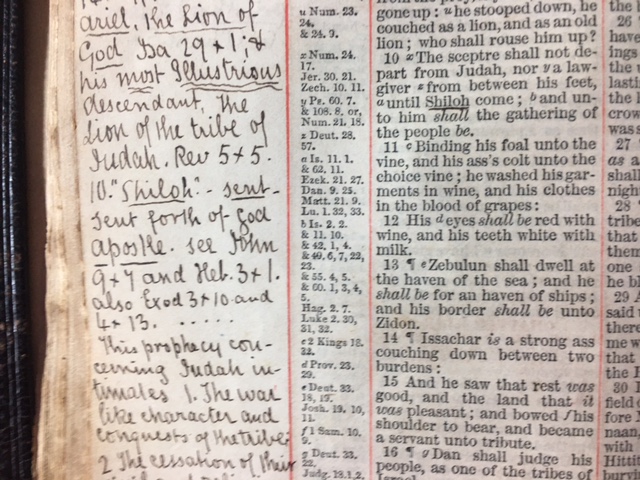 ariel, the Lion of
God Isa 29 + 1; &
his most Illustrious
descendant, the
Lion of the tribe of
Judah. Rev 5 + 5.
10. "Shiloh" - sent -
sent forth of God
apostle. see John
9 + 7 and Heb. 3 + 1.
also Exod 3 + 10 and
4 + 13. . . . . . .
This prophecy con-
cerning Judah in-
timates 1. The war
like character and
conquests of the tribe.
2 The cessation of their
u Num. 23.
24.
& 24. 9.
x Num. 24.
17.
Jer. 30. 21.
Zech. 10. 11.
y Ps. 60. 7.
& 108. 8. or,
Num. 21. 18.
z Deut. 28.
57.
a Is. 11. 1.
& 62. 11.
Ezek. 21. 27.
Dan. 9. 25.
Matt. 21. 9.
Lu. 1. 32, 33.
b Is. 2. 2.
& 11. 10.
& 42. 1, 4.
& 49. 6, 7, 22,
23.
& 55. 4, 5.
& 60. 1, 3, 4,
5.
Hag. 2. 7.
Luke 2. 30,
31, 32.
c 2 Kings 18.
32.
d Prov. 23.
29.
e Deut. 33.
18, 19.
Josh. 19. 10,
11.
f 1 Sam. 10.
9.
g Deut. 33.
22.
Judg. 18. 1, 2.
gone up: u he stooped down, he
couched as a lion, and as an old
lion; who shall rouse him up?
10 x The sceptre shall not de-
part from Judah, nor y a law-
giver z from between his feet,
a until Shiloh come; b and un-
to him shall the gathering of
the people be.
11 c Binding his foal unto the
vine, and his ass's colt unto the
choice vine; he washed his gar-
ments in wine, and his clothes
in the blood of grapes:
12 His d eyes shall be red with
wine, and his teeth white with
milk.
13 ¶ e Zebulun shall dwell at
the haven of the sea; and he
shall be for an haven of ships;
and his border shall be unto
Zidon.
14 ¶ Issachar is a strong ass
couching down between two
burdens:
15 And he saw that rest was
good, and the land that it
was pleasant; and bowed f his
shoulder to bear, and became
a servant unto tribute.
16 ¶ g Dan shall judge his
people, as one of the tribes of
Israel.